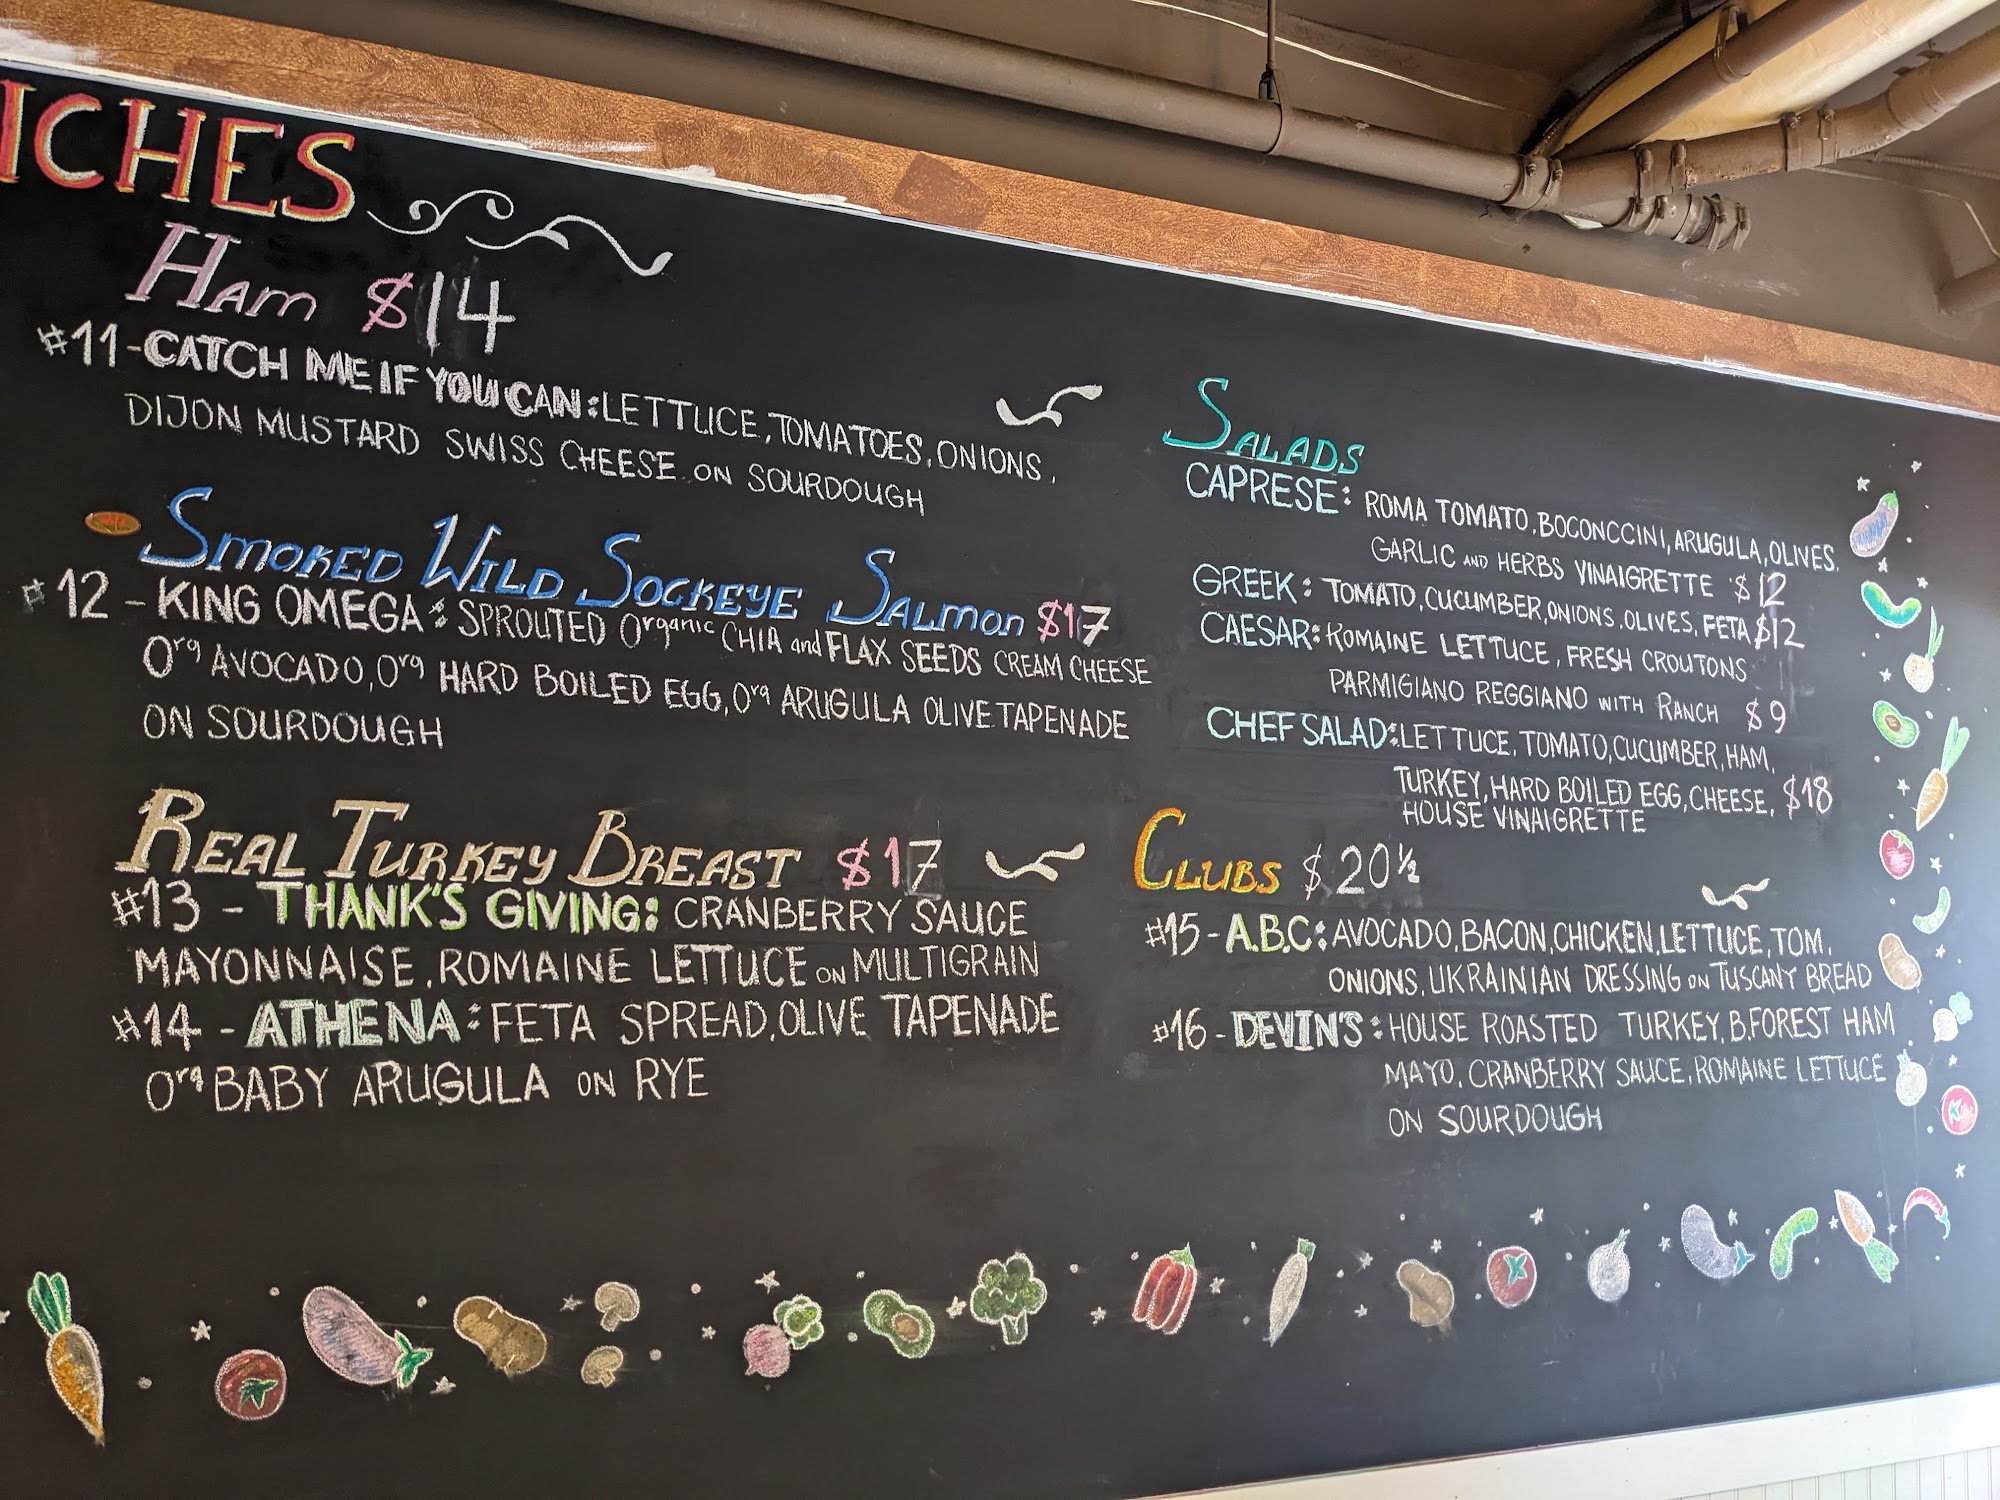 ICHES
Ham $14
#11-CATCH ME IF YOU CAN: LETTUCE, TOMATOES, ONIONS,
DIJON MUSTARD SWISS CHEESE ON SOURDOUGH
SMOKED WILD SOCKEYE SALMON $17
#12 - KING OMEGA: SPROUTED Organic CHIA and FLAX SEEDS CREAM CHEESE
Org AVOCADO, Org HARD BOILED EGG, Org ARUGULA OLIVE TAPENADE
ON SOURDOUGH
REAL TURKEY BREAST $17
#13 - THANK'S GIVING: CRANBERRY SAUCE
MAYONNAISE, ROMAINE LETTUCE ON MULTIGRAIN
#14 - ATHENA: FETA SPREAD, OLIVE TAPENADE
Org BABY ARUGULA ON RYE
SALADS
CAPRESE: ROMA TOMATO, BOCONCCINI, ARUGULA, OLIVES,
GARLIC AND HERBS VINAIGRETTE $12
GREEK: TOMATO, CUCUMBER, ONIONS, OLIVES, FETA $12
CAESAR: ROMAINE LETTUCE, FRESH CROUTONS
PARMIGIANO REGGIANO WITH RANCH $9
CHEF SALAD: LETTUCE, TOMATO, CUCUMBER, HAM,
TURKEY, HARD BOILED EGG, CHEESE, $18
HOUSE VINAIGRETTE
CLUBS $20½
#15-A.B.C: AVOCADO, BACON, CHICKEN, LETTUCE, TOM,
ONIONS, UKRAINIAN DRESSING ON TUSCANY BREAD
#16-DEVIN'S: HOUSE ROASTED TURKEY, B.FOREST HAM
MAYO, CRANBERRY SAUCE, ROMAINE LETTUCE
ON SOURDOUGH